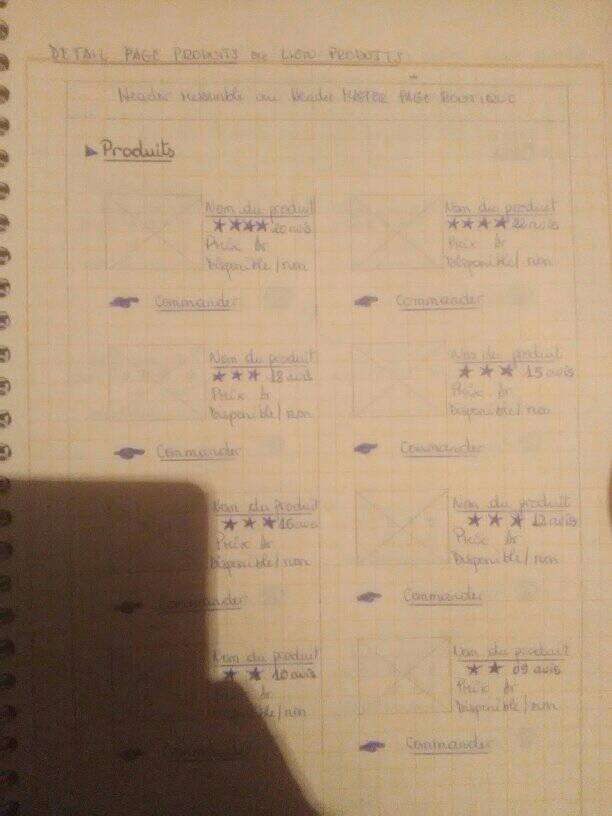 DETAIL PAGE PRODUITS LIEN PRODUITS
Header ressemble au Header MASTER PAGE BOUTIQUE
Produits
Nom du produit
★★★★ 20 avis
Prix Ar
Disponible/non
Commander
Nom du produit
★★★★ 20 avis
Prix Ar
Disponible/non
Commander
Nom du produit
★★★ 18 avis
Prix Ar
Disponible/non
Commander
Nom du produit
★★★ 15 avis
Prix Ar
Disponible/non
Commander
Nom du produit
★★★ 16 avis
Prix Ar
Disponible/non
Commander
Nom du produit
★★★ 12 avis
Prix Ar
Disponible/non
Commander
Nom du produit
★★ 10 avis
Ar
Disponible/non
Commander
Nom du produit
★★ 09 avis
Prix Ar
Disponible/non
Commander